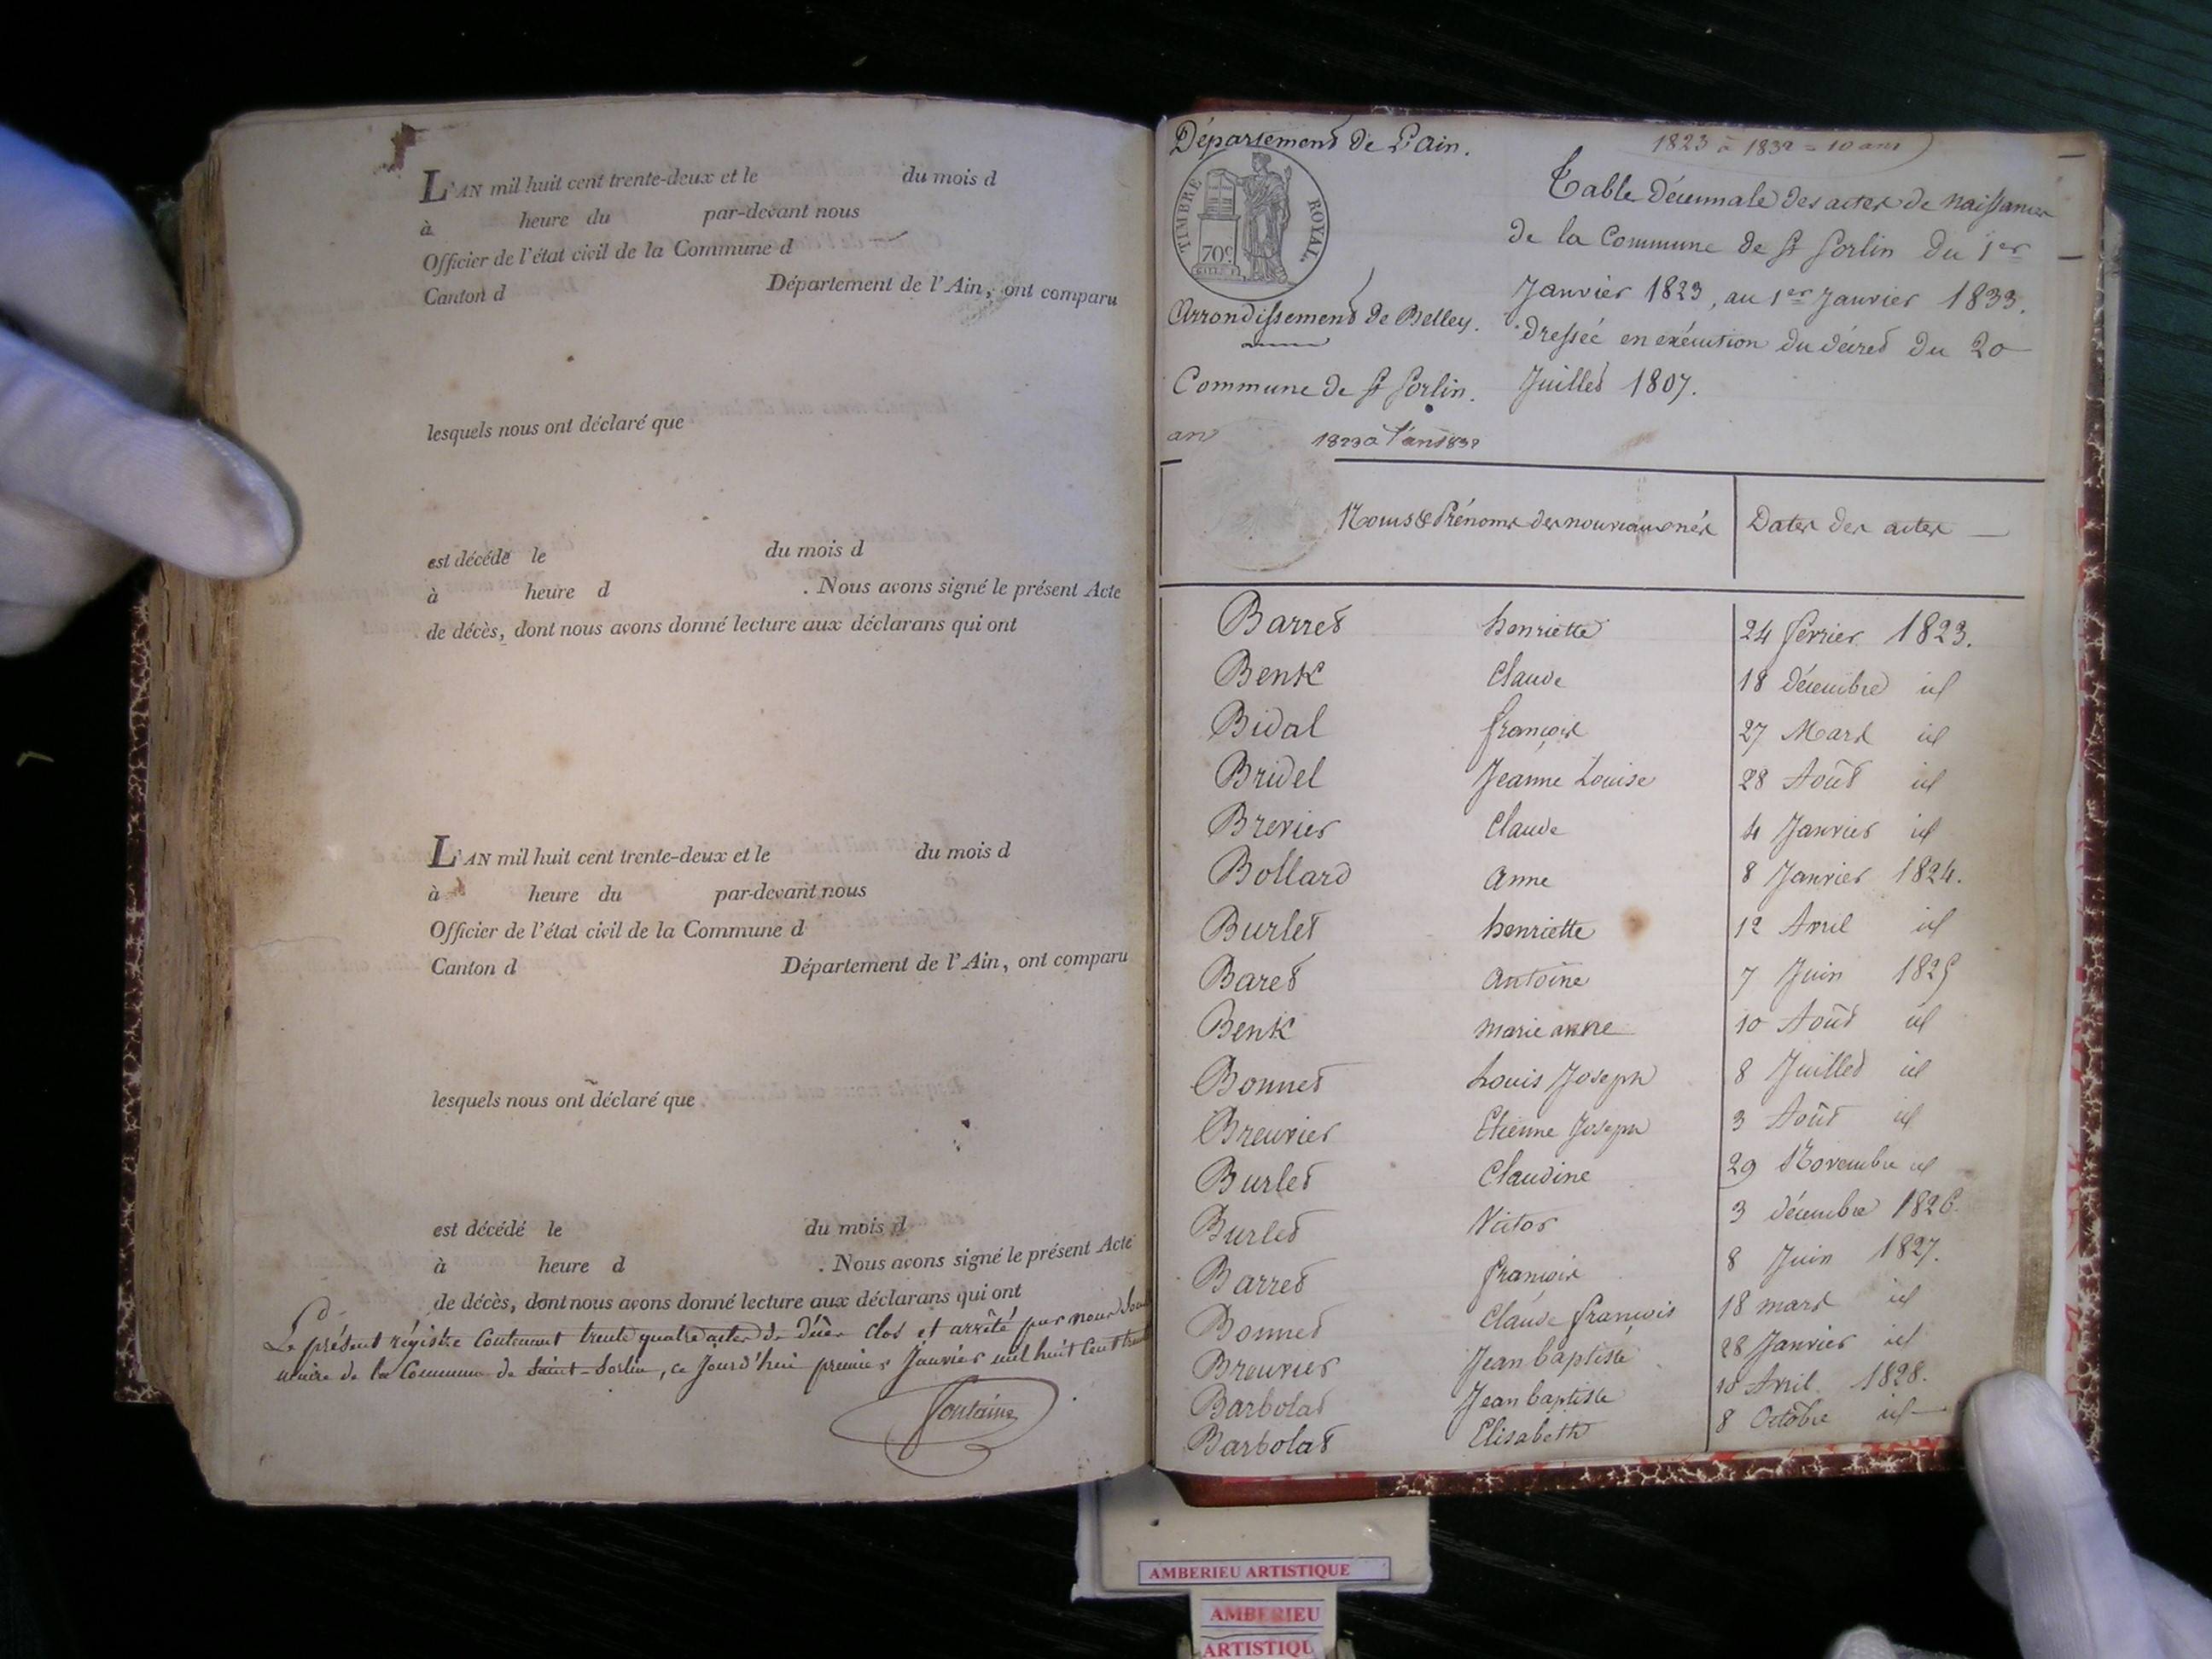 L'AN mil huit cent trente-deux et le du mois d
à heure du par-devant nous
Officier de l'état civil de la Commune d
Canton d Département de l'Ain, ont comparu
lesquels nous ont déclaré que
est décédé le du mois d
à heure d . Nous avons signé le présent Acte
de décès, dont nous avons donné lecture aux déclarans qui ont
L'AN mil huit cent trente-deux et le du mois d
à heure du par-devant nous
Officier de l'état civil de la Commune d
Canton d Département de l'Ain, ont comparu
lesquels nous ont déclaré que
est décédé le du mois d
à heure d . Nous avons signé le présent Acte
de décès, dont nous avons donné lecture aux déclarans qui ont
Le présent régistre Contenant trente quatre actes de décès clos et arrêté par nous
maire de la Commune de Saint-Sorlin, ce Jourd'hui premier Janvier mil huit Cent
Fontaine
Département de l'Ain.
1823 à 1832 = 10 ans
TIMBRE ROYAL.
70c.
Table décennale des actes de naissances
de la Commune de St Sorlin du 1er
Janvier 1823, au 1er Janvier 1833.
dressée en exécution du décret du 20
Juillet 1807.
Arrondissement de Belley.
Commune de St Sorlin.
an 1823 à l'an 1832
Noms & Prénoms des nouveaux nés Dates des actes
Barret henriette 24 février 1823.
Benk Claude 18 décembre id
Bidal françois 27 Mars id
Bridel Jeanne Louise 28 Août id
Brevier Claude 4 Janvier id
Bollard anne 8 Janvier 1824.
Burlet henriette 12 Avril id
Baret antoine 7 Juin 1825
Benk marie anne 10 Août id
Bonnet Louis Joseph 8 Juillet id
Breuvier Etienne Joseph 3 Août id
Burlet Claudine 29 Novembre id
Burlet Victor 3 décembre 1826.
Barret françois 8 Juin 1827.
Bonnet Claude françois 18 mars id
Breuvier Jean baptiste 28 Janvier id
Barbolat Jean baptiste 10 Avril 1828.
Barbolat Elisabeth 8 Octobre id
AMBERIEU ARTISTIQUE
AMBERIEU
ARTISTIQU